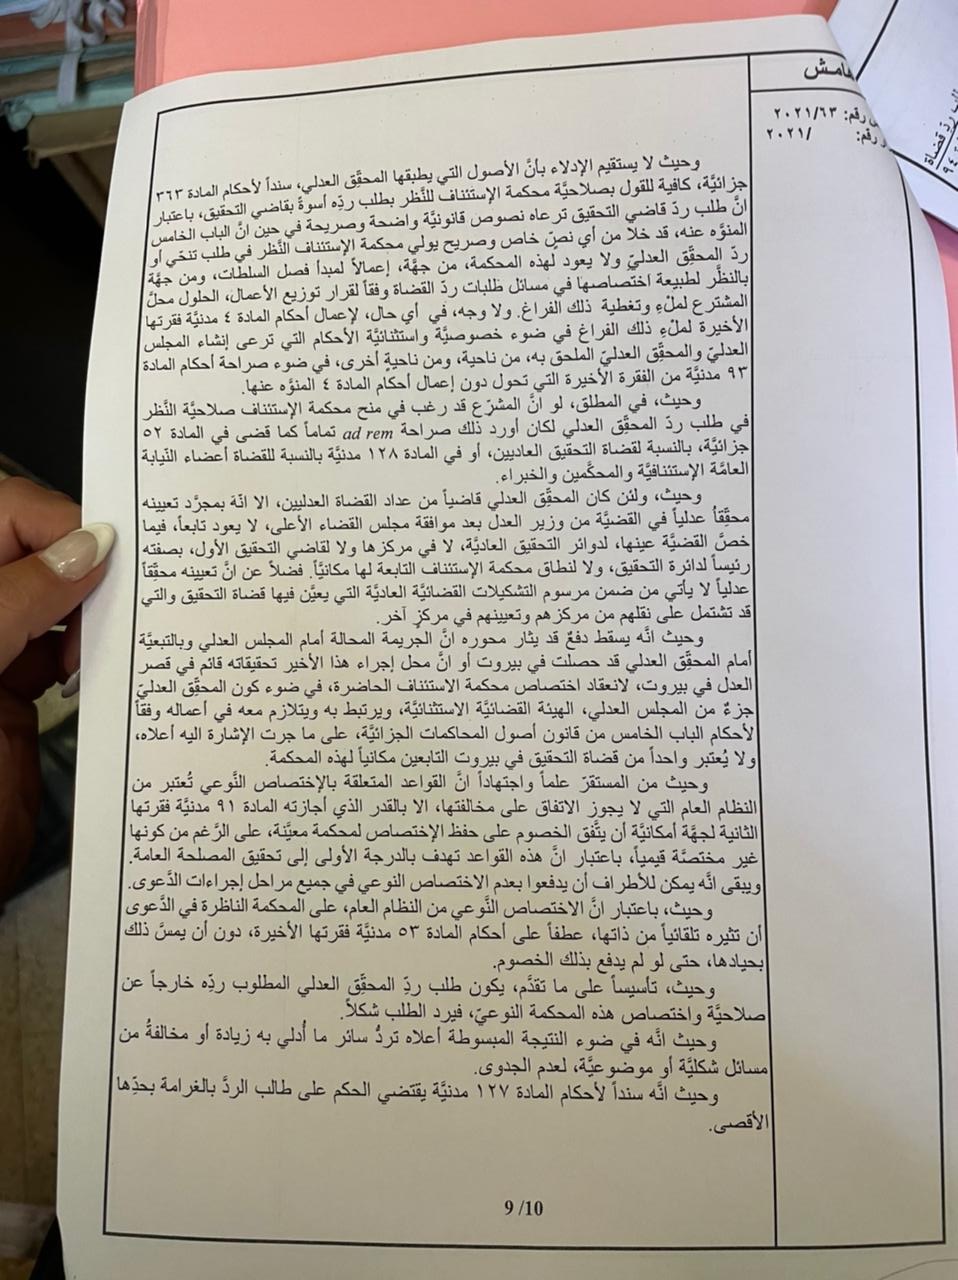 هامش
رقم: ٢٠٢١/٦٣
رقم: /٢٠٢١
وحيث لا يستقيم الإدلاء بأنَّ الأصول التي يطبقها المحقِّق العدلي، سنداً لأحكام المادة ٣٦٣
جزائيَّة، كافية للقول بصلاحيَّة محكمة الإستئناف للنَّظر بطلب ردِّه أسوةً بقاضي التحقيق، باعتبار
انَّ طلب ردّ قاضي التحقيق ترعاه نصوص قانونيَّة واضحة وصريحة في حين انَّ الباب الخامس
المنوَّه عنه، قد خلا من أي نصّ خاص وصريح يولي محكمة الإستئناف النَّظر في طلب تنحّي أو
ردّ المحقِّق العدليّ ولا يعود لهذه المحكمة، من جهة، إعمالاً لمبدأ فصل السلطات، ومن جهَّة
بالنظَّر لطبيعة اختصاصها في مسائل طلبات ردّ القضاة وفقاً لقرار توزيع الأعمال، الحلول محلّ
المشترع لملْءِ وتغطية ذلك الفراغ. ولا وجه، في أي حال، لإعمال أحكام المادة ٤ مدنيَّة فقرتها
الأخيرة لملْءِ ذلك الفراغ في ضوء خصوصيَّة واستثنائيَّة الأحكام التي ترعى إنشاء المجلس
العدليّ والمحقِّق العدليّ الملحق به، من ناحية، ومن ناحيةٍ أخرى، في ضوء صراحة أحكام المادة
٩٣ مدنيَّة من الفقرة الأخيرة التي تحول دون إعمال أحكام المادة ٤ المنوَّه عنها.
وحيث، في المطلق، لو انَّ المشرّع قد رغب في منح محكمة الإستئناف صلاحيَّة النَّظر
في طلب ردّ المحقِّق العدلي لكان أورد ذلك صراحة ad rem تماماً كما قضى في المادة ٥٢
جزائيَّة، بالنسبة لقضاة التحقيق العاديين، أو في المادة ١٢٨ مدنيَّة بالنسبة للقضاة أعضاء النّيابة
العامَّة الإستئنافيَّة والمحكَّمين والخبراء.
وحيث، ولئن كان المحقِّق العدلي قاضياً من عداد القضاة العدليين، الا انّه بمجرَّد تعيينه
محقّقاً عدلياً في القضيَّة من وزير العدل بعد موافقة مجلس القضاء الأعلى، لا يعود تابعاً، فيما
خصَّ القضيَّة عينها، لدوائر التحقيق العاديَّة، لا في مركزها ولا لقاضي التحقيق الأول، بصفته
رئيساً لدائرة التحقيق، ولا لنطاق محكمة الإستئناف التابعة لها مكانيَّاً. فضلاً عن انَّ تعيينه محقِّقاً
عدلياً لا يأتي من ضمن مرسوم التشكيلات القضائيَّة العاديَّة التي يعيَّن فيها قضاة التحقيق والتي
قد تشتمل على نقلهم من مركزهم وتعيينهم في مركزٍ آخر.
وحيث انَّه يسقط دفعٌ قد يثار محوره انَّ الجريمة المحالة أمام المجلس العدلي وبالتبعيَّة
أمام المحقِّق العدلي قد حصلت في بيروت أو انَّ محل إجراء هذا الأخير تحقيقاته قائم في قصر
العدل في بيروت، لانعقاد اختصاص محكمة الاستئناف الحاضرة، في ضوء كون المحقِّق العدليّ
جزءٌ من المجلس العدلي، الهيئة القضائيَّة الاستثنائيَّة، ويرتبط به ويتلازم معه في أعماله وفقاً
لأحكام الباب الخامس من قانون أصول المحاكمات الجزائيَّة، على ما جرت الإشارة اليه أعلاه،
ولا يُعتبر واحداً من قضاة التحقيق في بيروت التابعين مكانياً لهذه المحكمة.
وحيث من المستقرّ علماً واجتهاداً انَّ القواعد المتعلقة بالإختصاص النَّوعي تُعتبر من
النظام العام التي لا يجوز الاتفاق على مخالفتها، الا بالقدر الذي أجازته المادة ٩١ مدنيَّة فقرتها
الثانية لجهَّة أمكانيَّة أن يتَّفق الخصوم على حفظ الإختصاص لمحكمة معيَّنة، على الرَّغم من كونها
غير مختصَّة قيمياً، باعتبار انَّ هذه القواعد تهدف بالدرجة الأولى إلى تحقيق المصلحة العامة.
ويبقى انَّه يمكن للأطراف أن يدفعوا بعدم الاختصاص النوعي في جميع مراحل إجراءات الدَّعوى.
وحيث، باعتبار انَّ الاختصاص النَّوعي من النظام العام، على المحكمة الناظرة في الدَّعوى
أن تثيره تلقائياً من ذاتها، عطفاً على أحكام المادة ٥٣ مدنيَّة فقرتها الأخيرة، دون أن يمسَّ ذلك
بحيادها، حتى لو لم يدفع بذلك الخصوم.
وحيث، تأسيساً على ما تقدَّم، يكون طلب ردِّ المحقِّق العدلي المطلوب ردِّه خارجاً عن
صلاحيَّة واختصاص هذه المحكمة النوعيّ، فيرد الطلب شكلاً.
وحيث انَّه في ضوء النتيجة المبسوطة أعلاه تردُّ سائر ما أُدلي به زيادة أو مخالفةُ من
مسائل شكليَّة أو موضوعيَّة، لعدم الجدوى.
وحيث انَّه سنداً لأحكام المادة ١٢٧ مدنيَّة يقتضي الحكم على طالب الردَّ بالغرامة بحدِّها
الأقصى.
9 /10